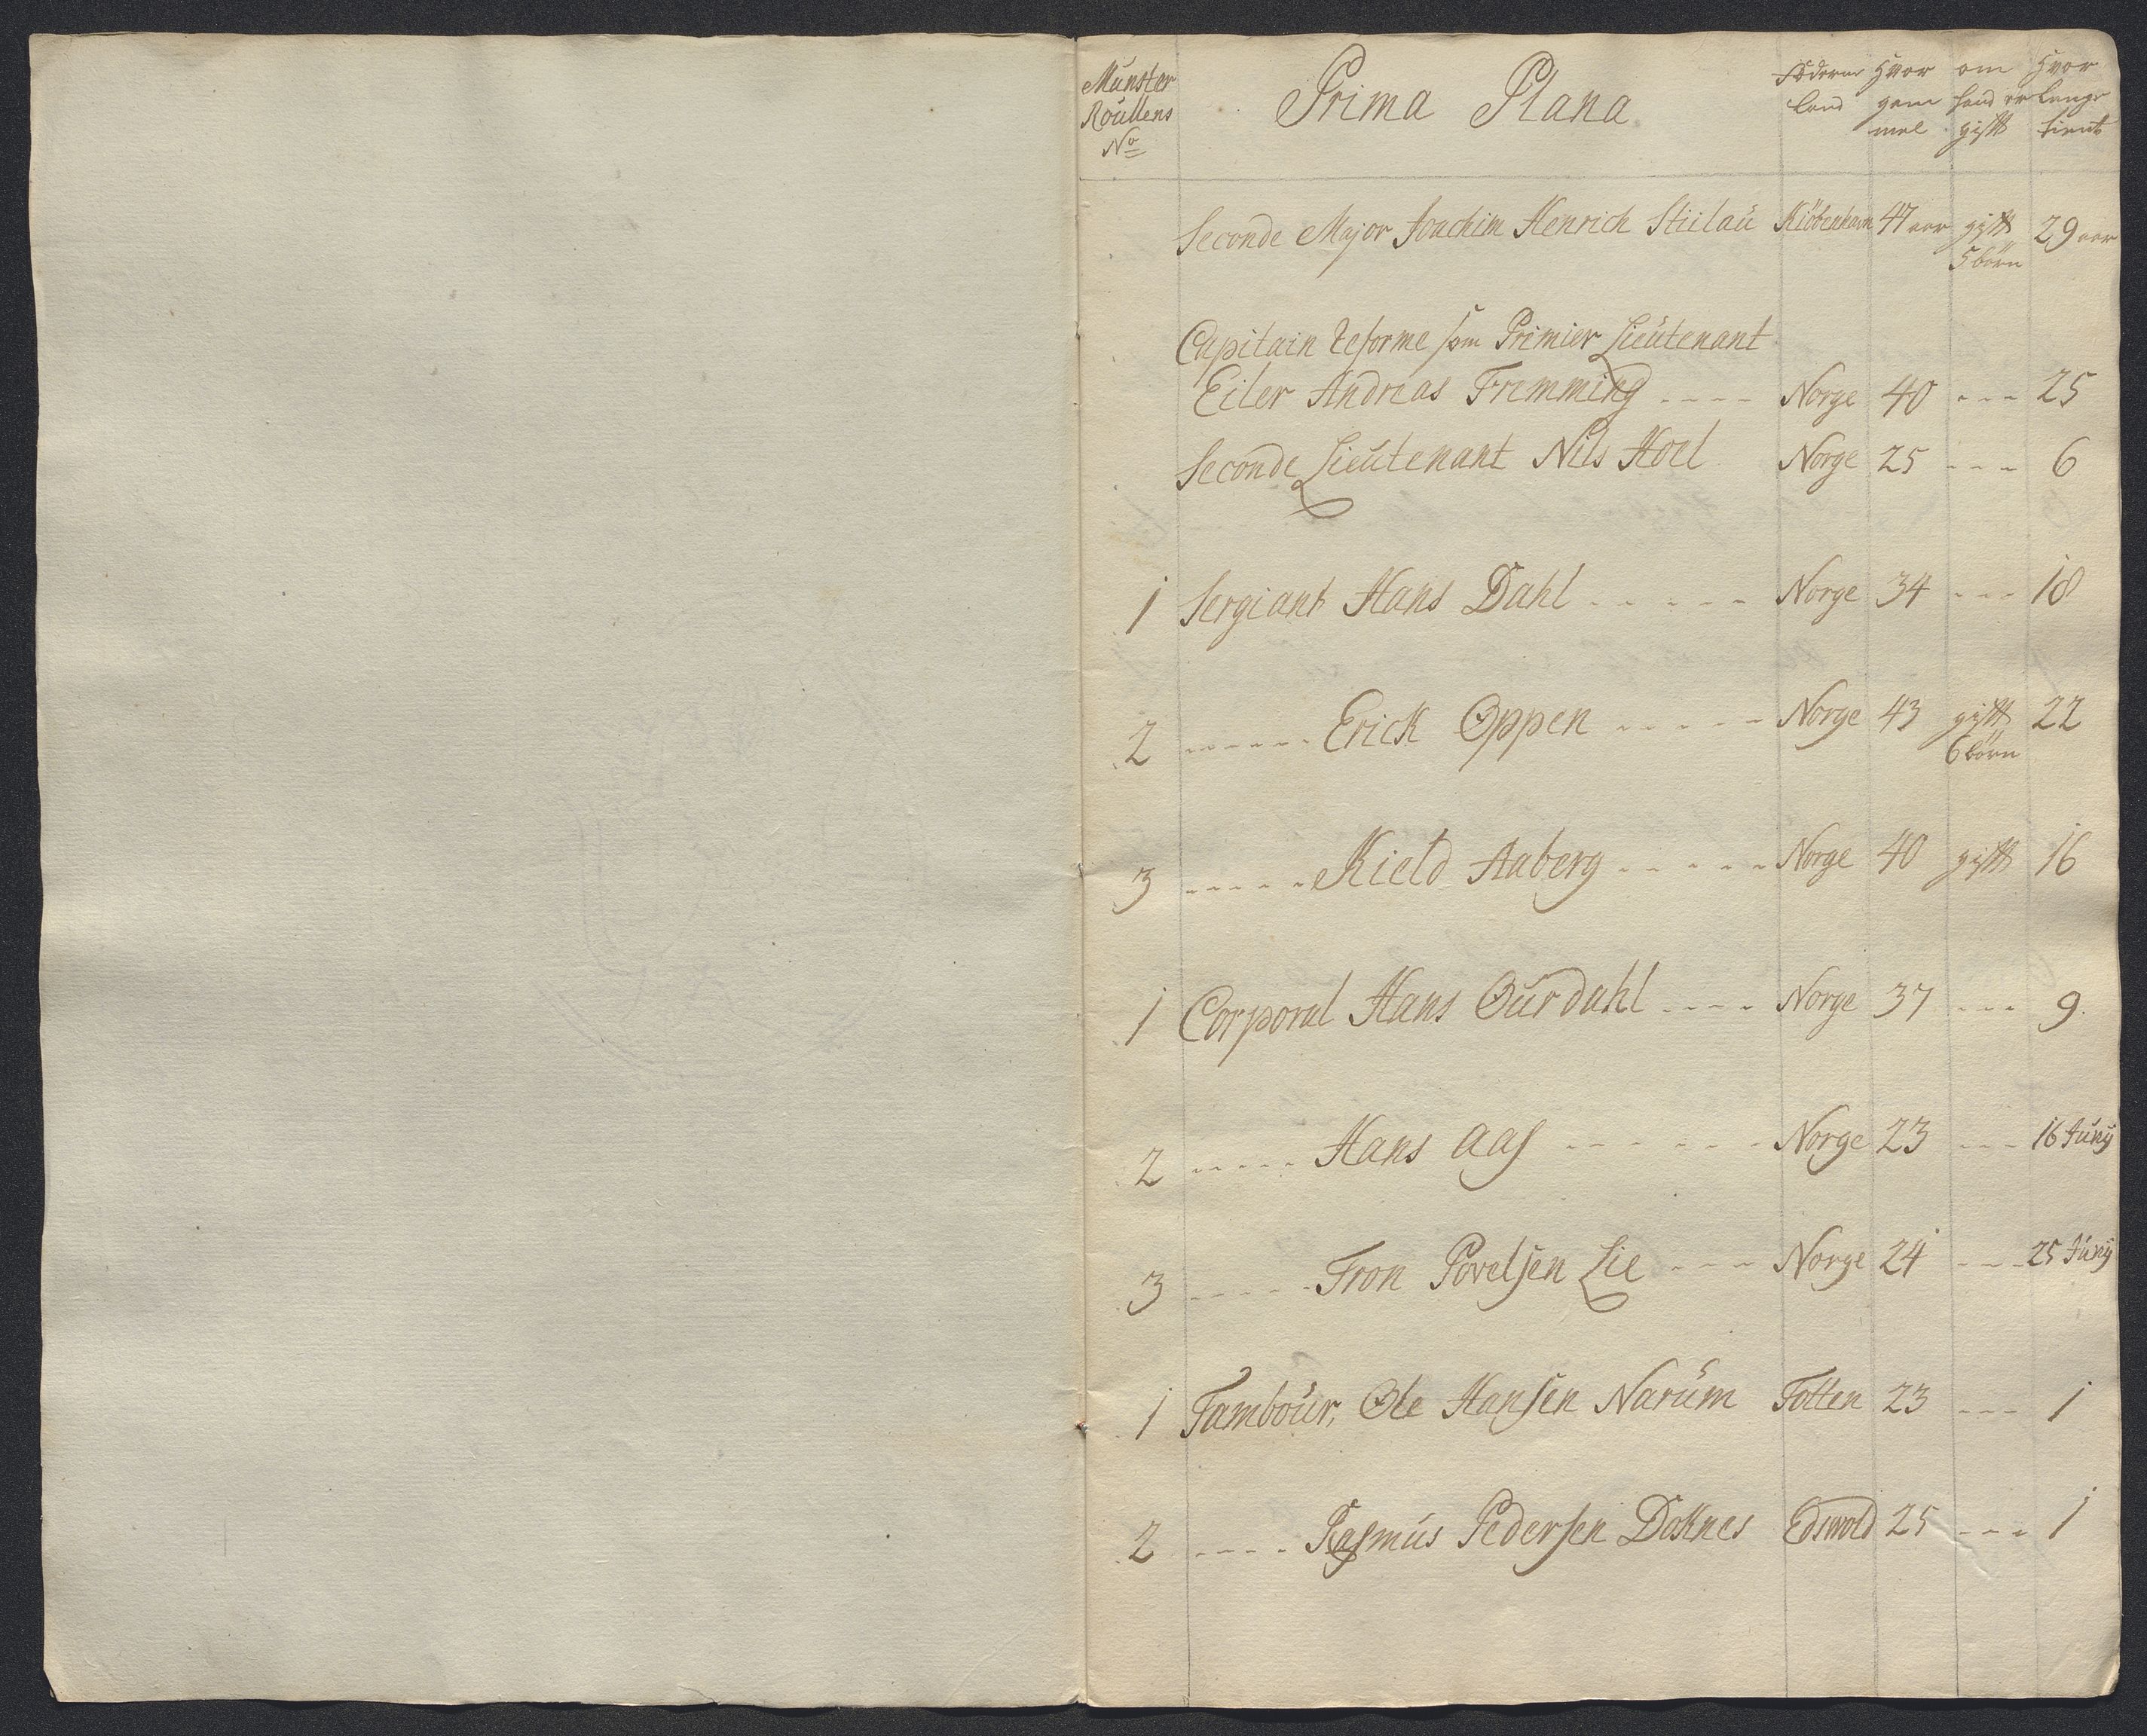 Munster Roullens No
Prima Plana
Föderne land
Hvor gam mel
om hand er gifft
Hvor lenge tient
Seconde Major Joachim Henrich Stiilau Kiöbenhavn 47 aar gifft 5 börn 29 aar
Capitain Reforme som Primier Lieutenant
Eiler Andreas Fremming ---- Norge 40 --- 25
Seconde Lieutenant Nils Hoel Norge 25 --- 6
1 Sergiant Hans Dahl ----- Norge 34 --- 18
2 ------ Erick Oppen ----- Norge 43 gifft 6 börn 22
3 ----- Kield Aaberg ----- Norge 40 gifft 16
1 Corporal Hans Ourdahl ---- Norge 37 --- 9.
2 ----- Hans Aas ------ Norge 23 --- 16 Junij
3 ----- Tron Povelsen Lie --- Norge 24 --- 25 Junij
1 Tambour, Ole Hansen Narum Totten 23 --- 1
2 ---- Rasmus Pedersen Doknes Edswold 25 --- 1